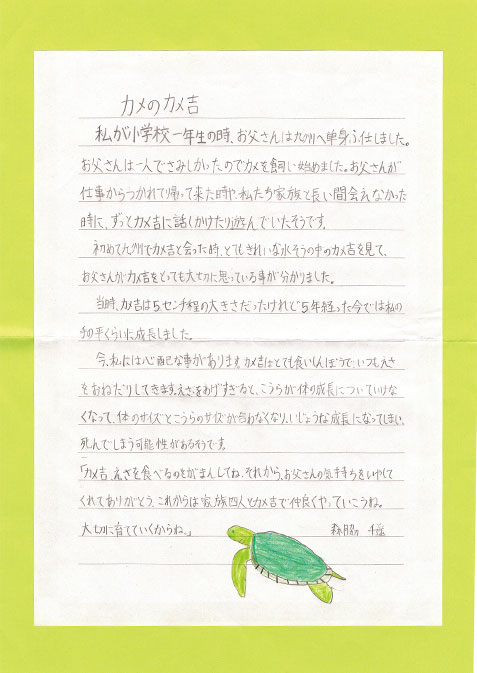 カメのカメ吉
私が小学校一年生の時、お父さんは九州へ単身ふ任しました。
お父さんは一人でさみしかったのでカメを飼い始めました。お父さんが
仕事からつかれて帰って来た時や、私たち家族と長い間会えなかった
時に、ずっとカメ吉に話しかけたり遊んでいたそうです。
初めて九州でカメ吉と会った時、とてもきれいな水そうの中のカメ吉を見て、
お父さんがカメ吉をとっても大切に思っている事が分かりました。
当時、カメ吉は5センチ程の大きさだったけれど5年経った今では私の
手の平くらいに成長しました。
今、私には心配な事があります。カメ吉はとても食いしんぼうで、いつもえさ
をおねだりしてきます。えさをあげすぎると、こうらが体の成長についていけな
くなって、体のサイズとこうらのサイズが合わなくなり、いじょうな成長になってしまい、
死んでしまう可能性があるそうです。
「カメ吉、えさを食べるのをがまんしてね。それから、お父さんの気持ちをいやして
くれてありがとう。これからは家族四人とカメ吉で仲良くやっていこうね。
大切に育てていくからね。」 森脇 千遥